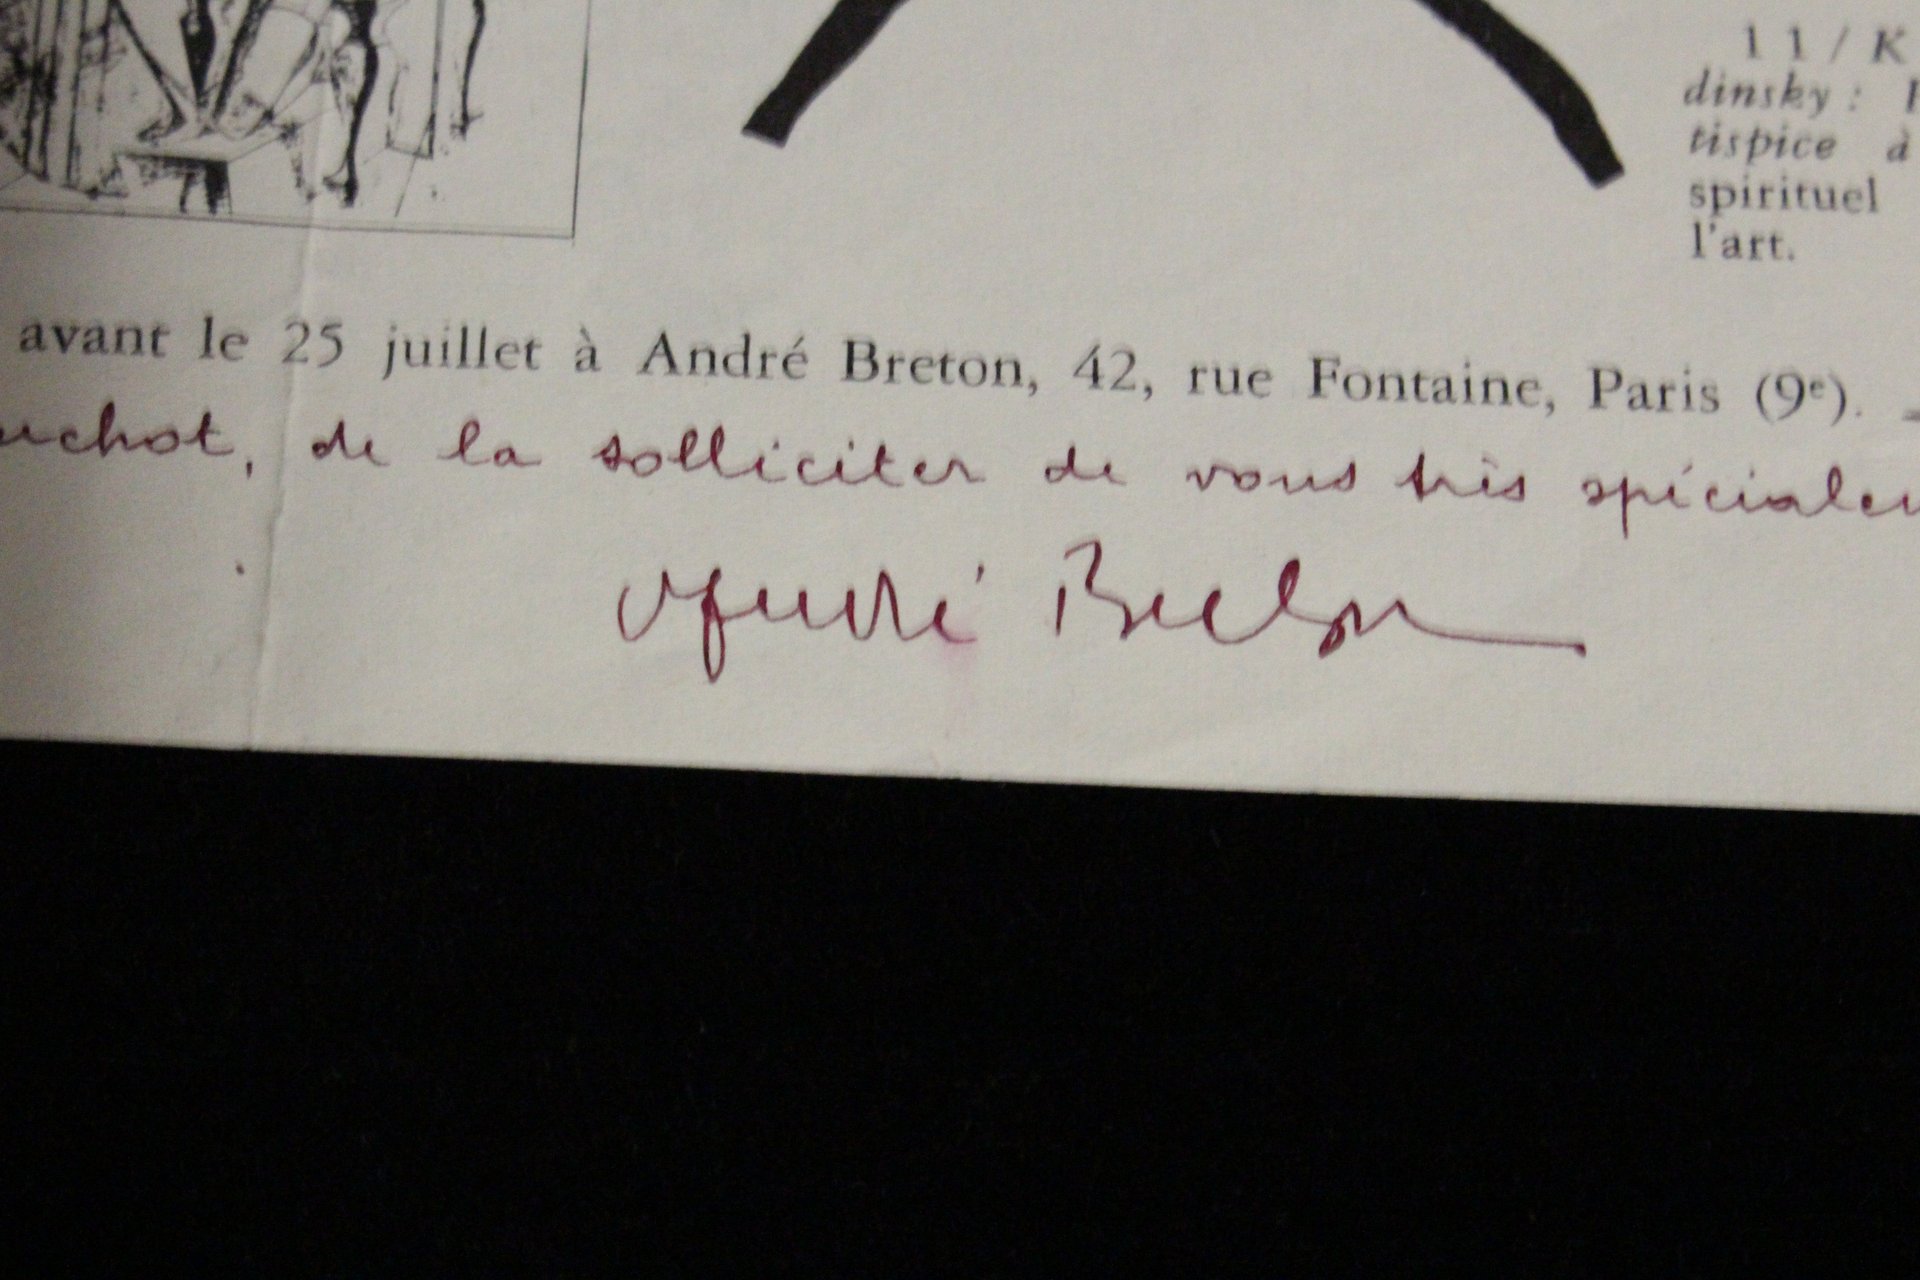 11/K
dinsky :
tispice à
spirituel
l'art.
avant le 25 juillet à André Breton, 42, rue Fontaine, Paris (9e).
uchot, de la solliciter de vous très spécialem
André Breton